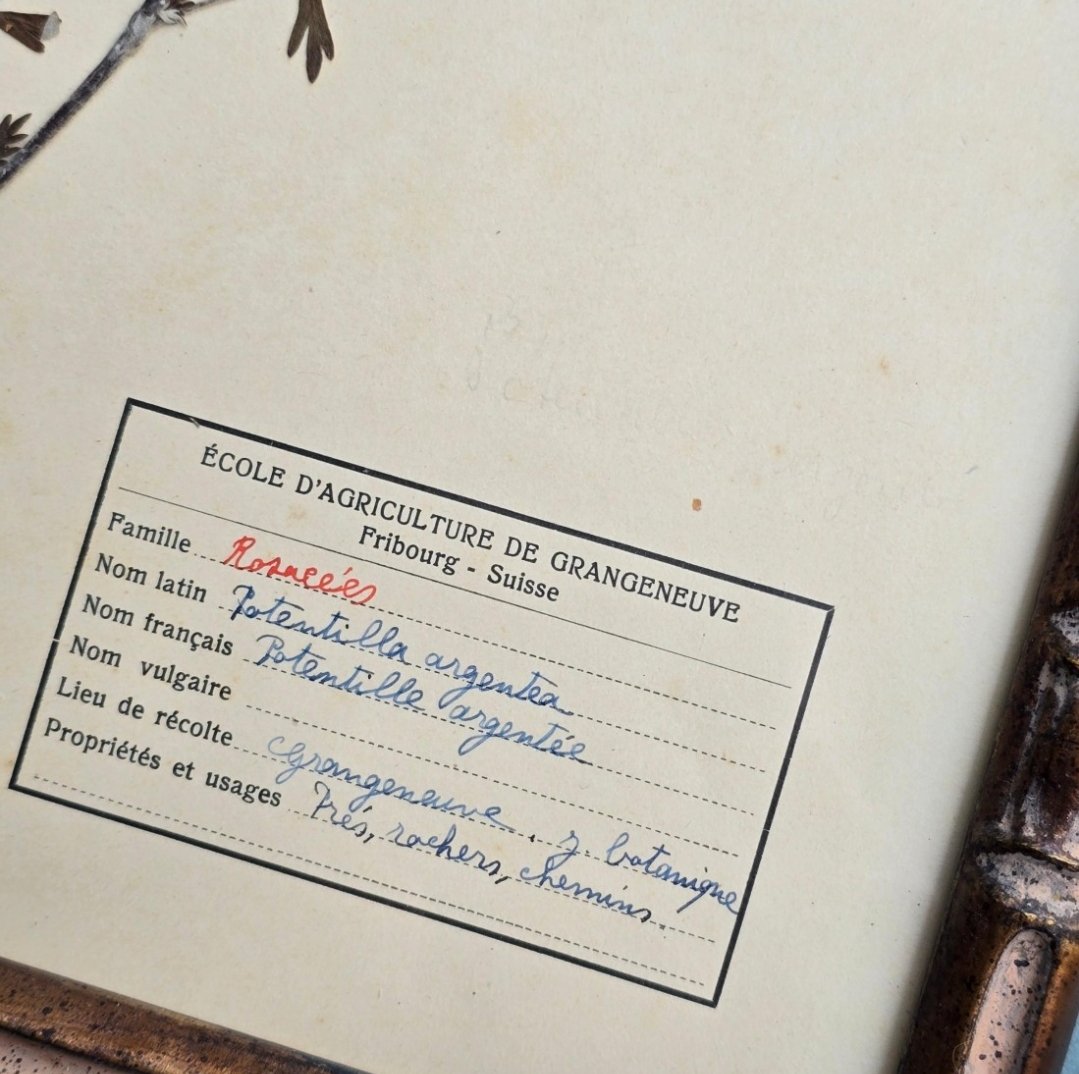 ÉCOLE D'AGRICULTURE DE GRANGENEUVE
Fribourg - Suisse
Famille Rosacées
Nom latin Potentilla argentea
Nom français Potentille argentée
Nom vulgaire
Lieu de récolte Grangeneuve. J. botanique
Propriétés et usages Prés, rochers, chemins.